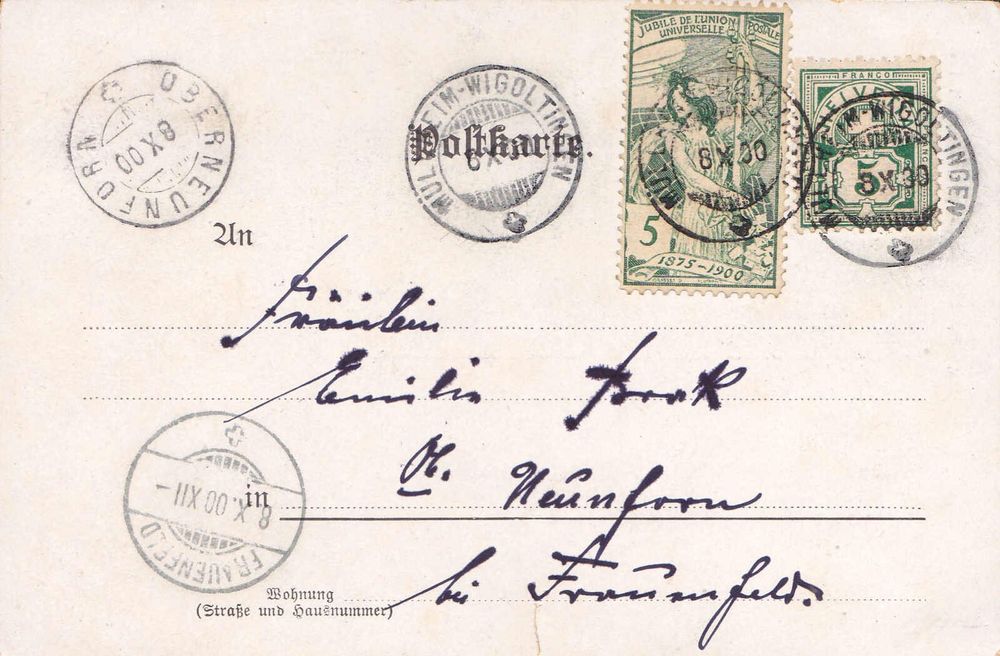 JUBILÉ DE L'UNION
POSTALE
UNIVERSELLE
5
1875-1900
FRANCO
HELVETIA
5
OBERNEUNFORN
8 X 00
MÜLHEIM-WIGOLTINGEN
8 X
MÜL
8 X 00
M-WIGOLTINGEN
Postkarte.
An
Fräulein
Emilie
Ob. Neunforn
in
bei Frauenfeld.
FRAUENFELD
8. X. 00 XII-
Wohnung
(Straße und Hausnummer)